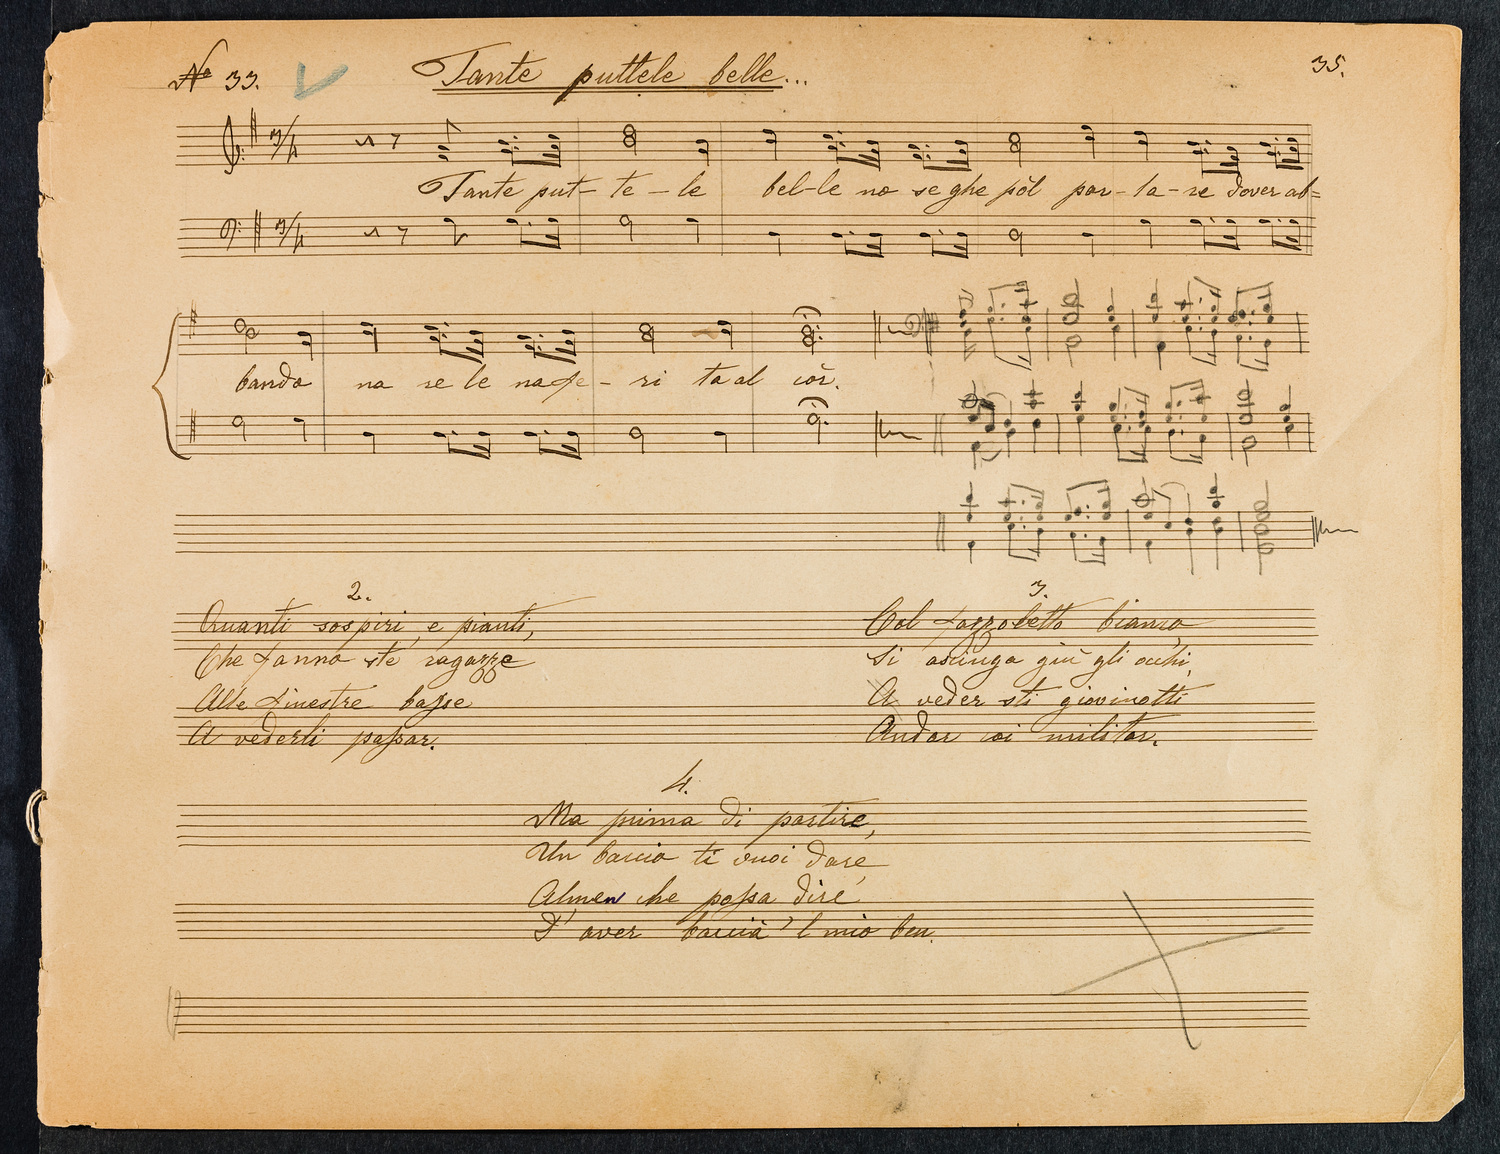 No 33.
Tante puttele belle...
35.
3/4
Tante put- te - le bel-le no se ghe pòl par-la-re dover ab=
3/4
bando na re le na fe - ri ta al còr.
2.
Quanti sospiri, e pianti,
Che fanno ste ragazze
Alle finestre basse
A vederli passar.
3.
Col fazzoletto bianco,
Si asciuga giù gli occhi,
A veder sti giovinotti
Andar coi militar.
4.
Ma prima di partire,
Un baccio ti vuoi dare,
Almen che possa dire
D' aver baccià 'l mio ben.